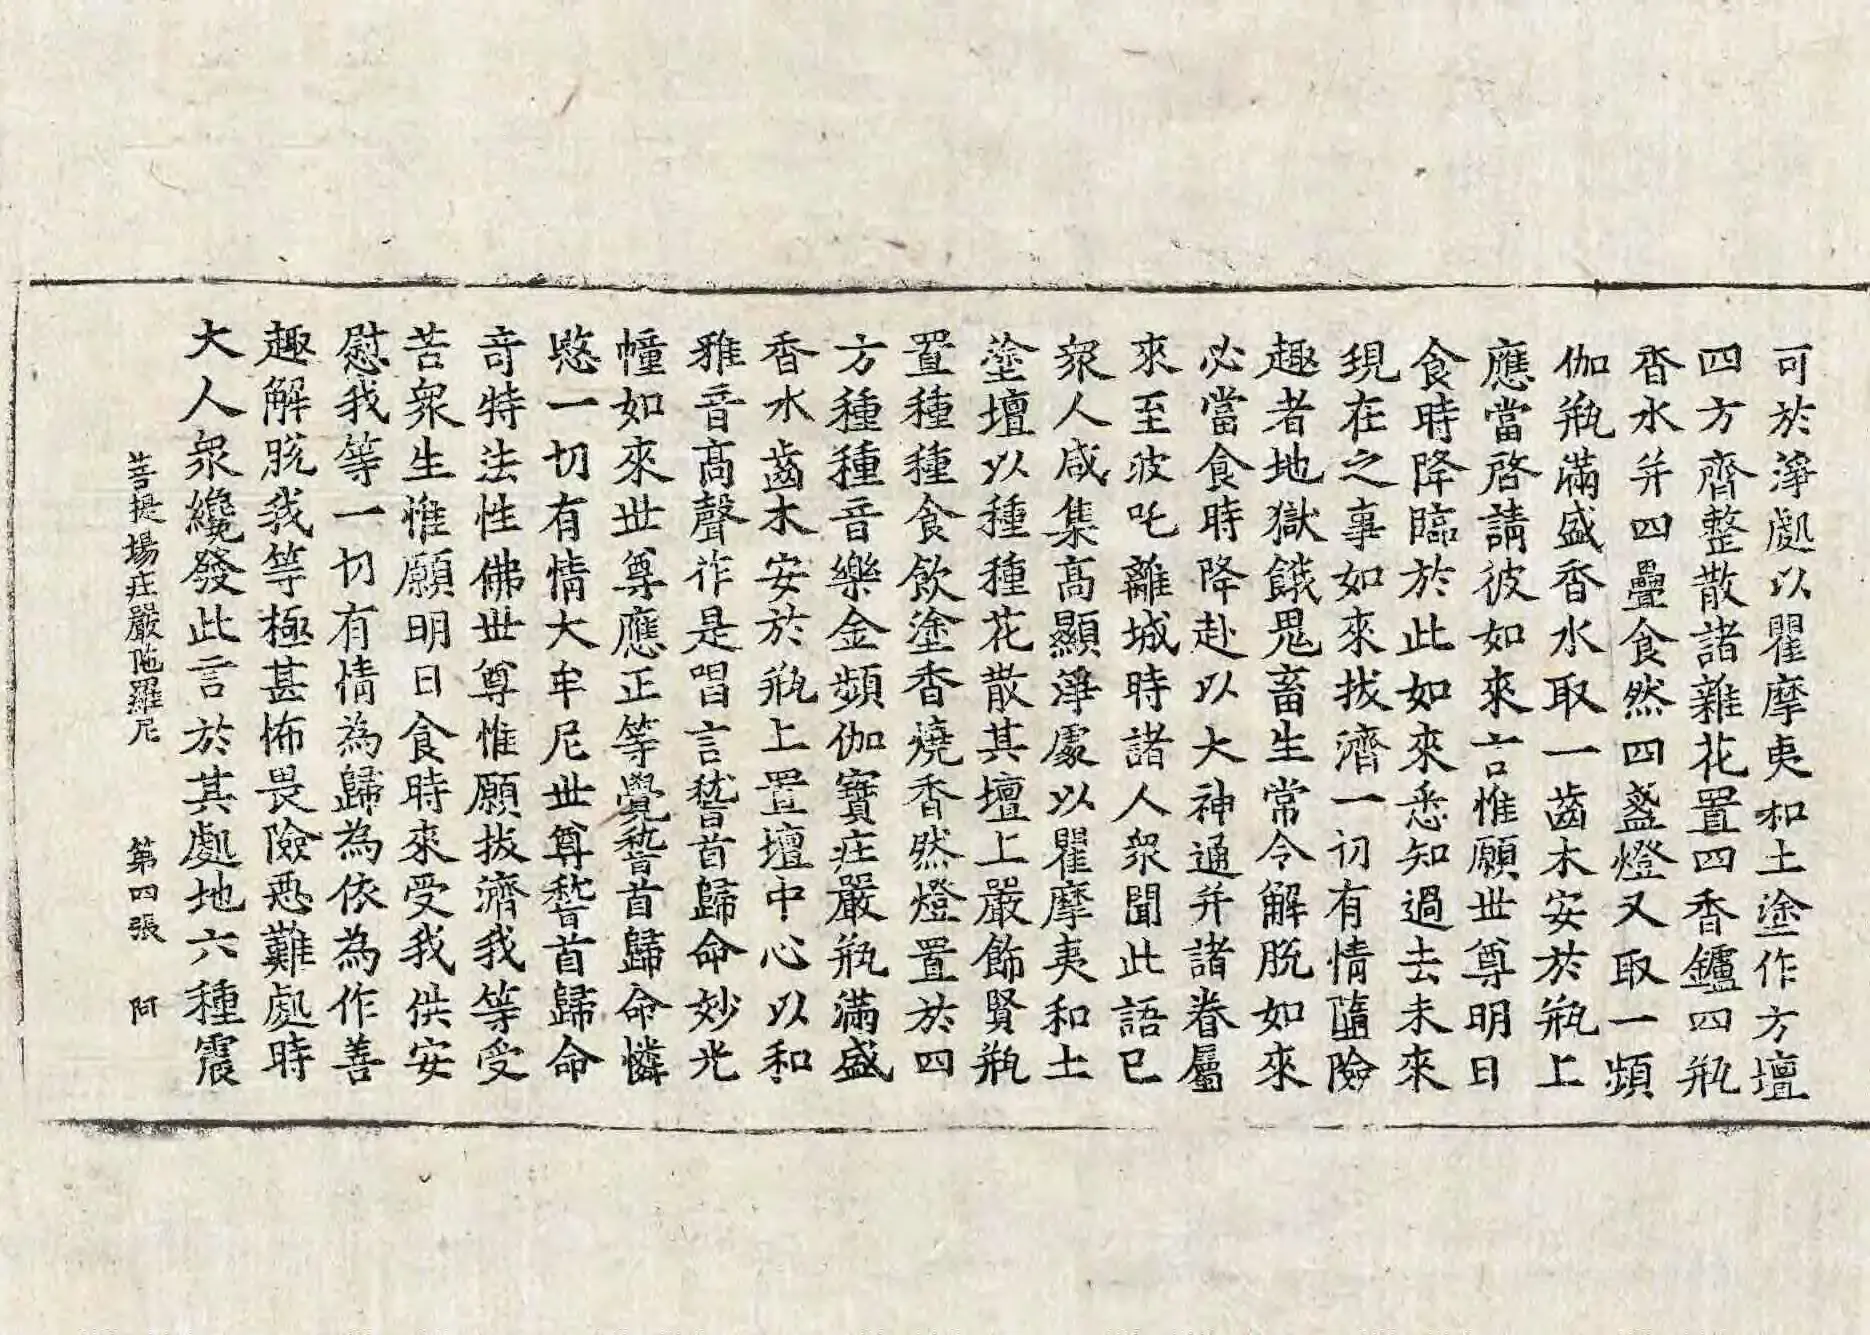 可於淨處以瞿摩夷和土塗作方壇
四方齊整散諸雜花置四香鑪四瓶
香水并四疊食然四盞燈又取一頻
伽瓶滿盛香水取一齒木安於瓶上
應當啓請彼如來言惟願世尊明日
食時降臨於此如來悉知過去未來
現在之事如來拔濟一切有情隨險
趣者地獄餓鬼畜生常令解脫如來
必當食時降赴以大神通并諸眷屬
來至彼吒離城時諸人衆聞此語已
衆人咸集高顯淨處以瞿摩夷和土
塗壇以種種花散其壇上嚴飾賢瓶
置種種食飲塗香燒香然燈置於四
方種種音樂金頻伽寶莊嚴瓶滿盛
香水齒木安於瓶上置壇中心以和
雅音高聲作是唱言嵇首歸命妙光
幢如來世尊應正等覺嵇首歸命憐
愍一切有情大牟尼世尊嵇首歸命
奇特法性佛世尊惟願拔濟我等受
苦衆生惟願明日食時來受我供安
慰我等一切有情為歸為依為作善
趣解脫我等極甚怖畏險惡難處時
大人衆纔發此言於其處地六種震
菩提場莊嚴陁羅尼 第四張 阿